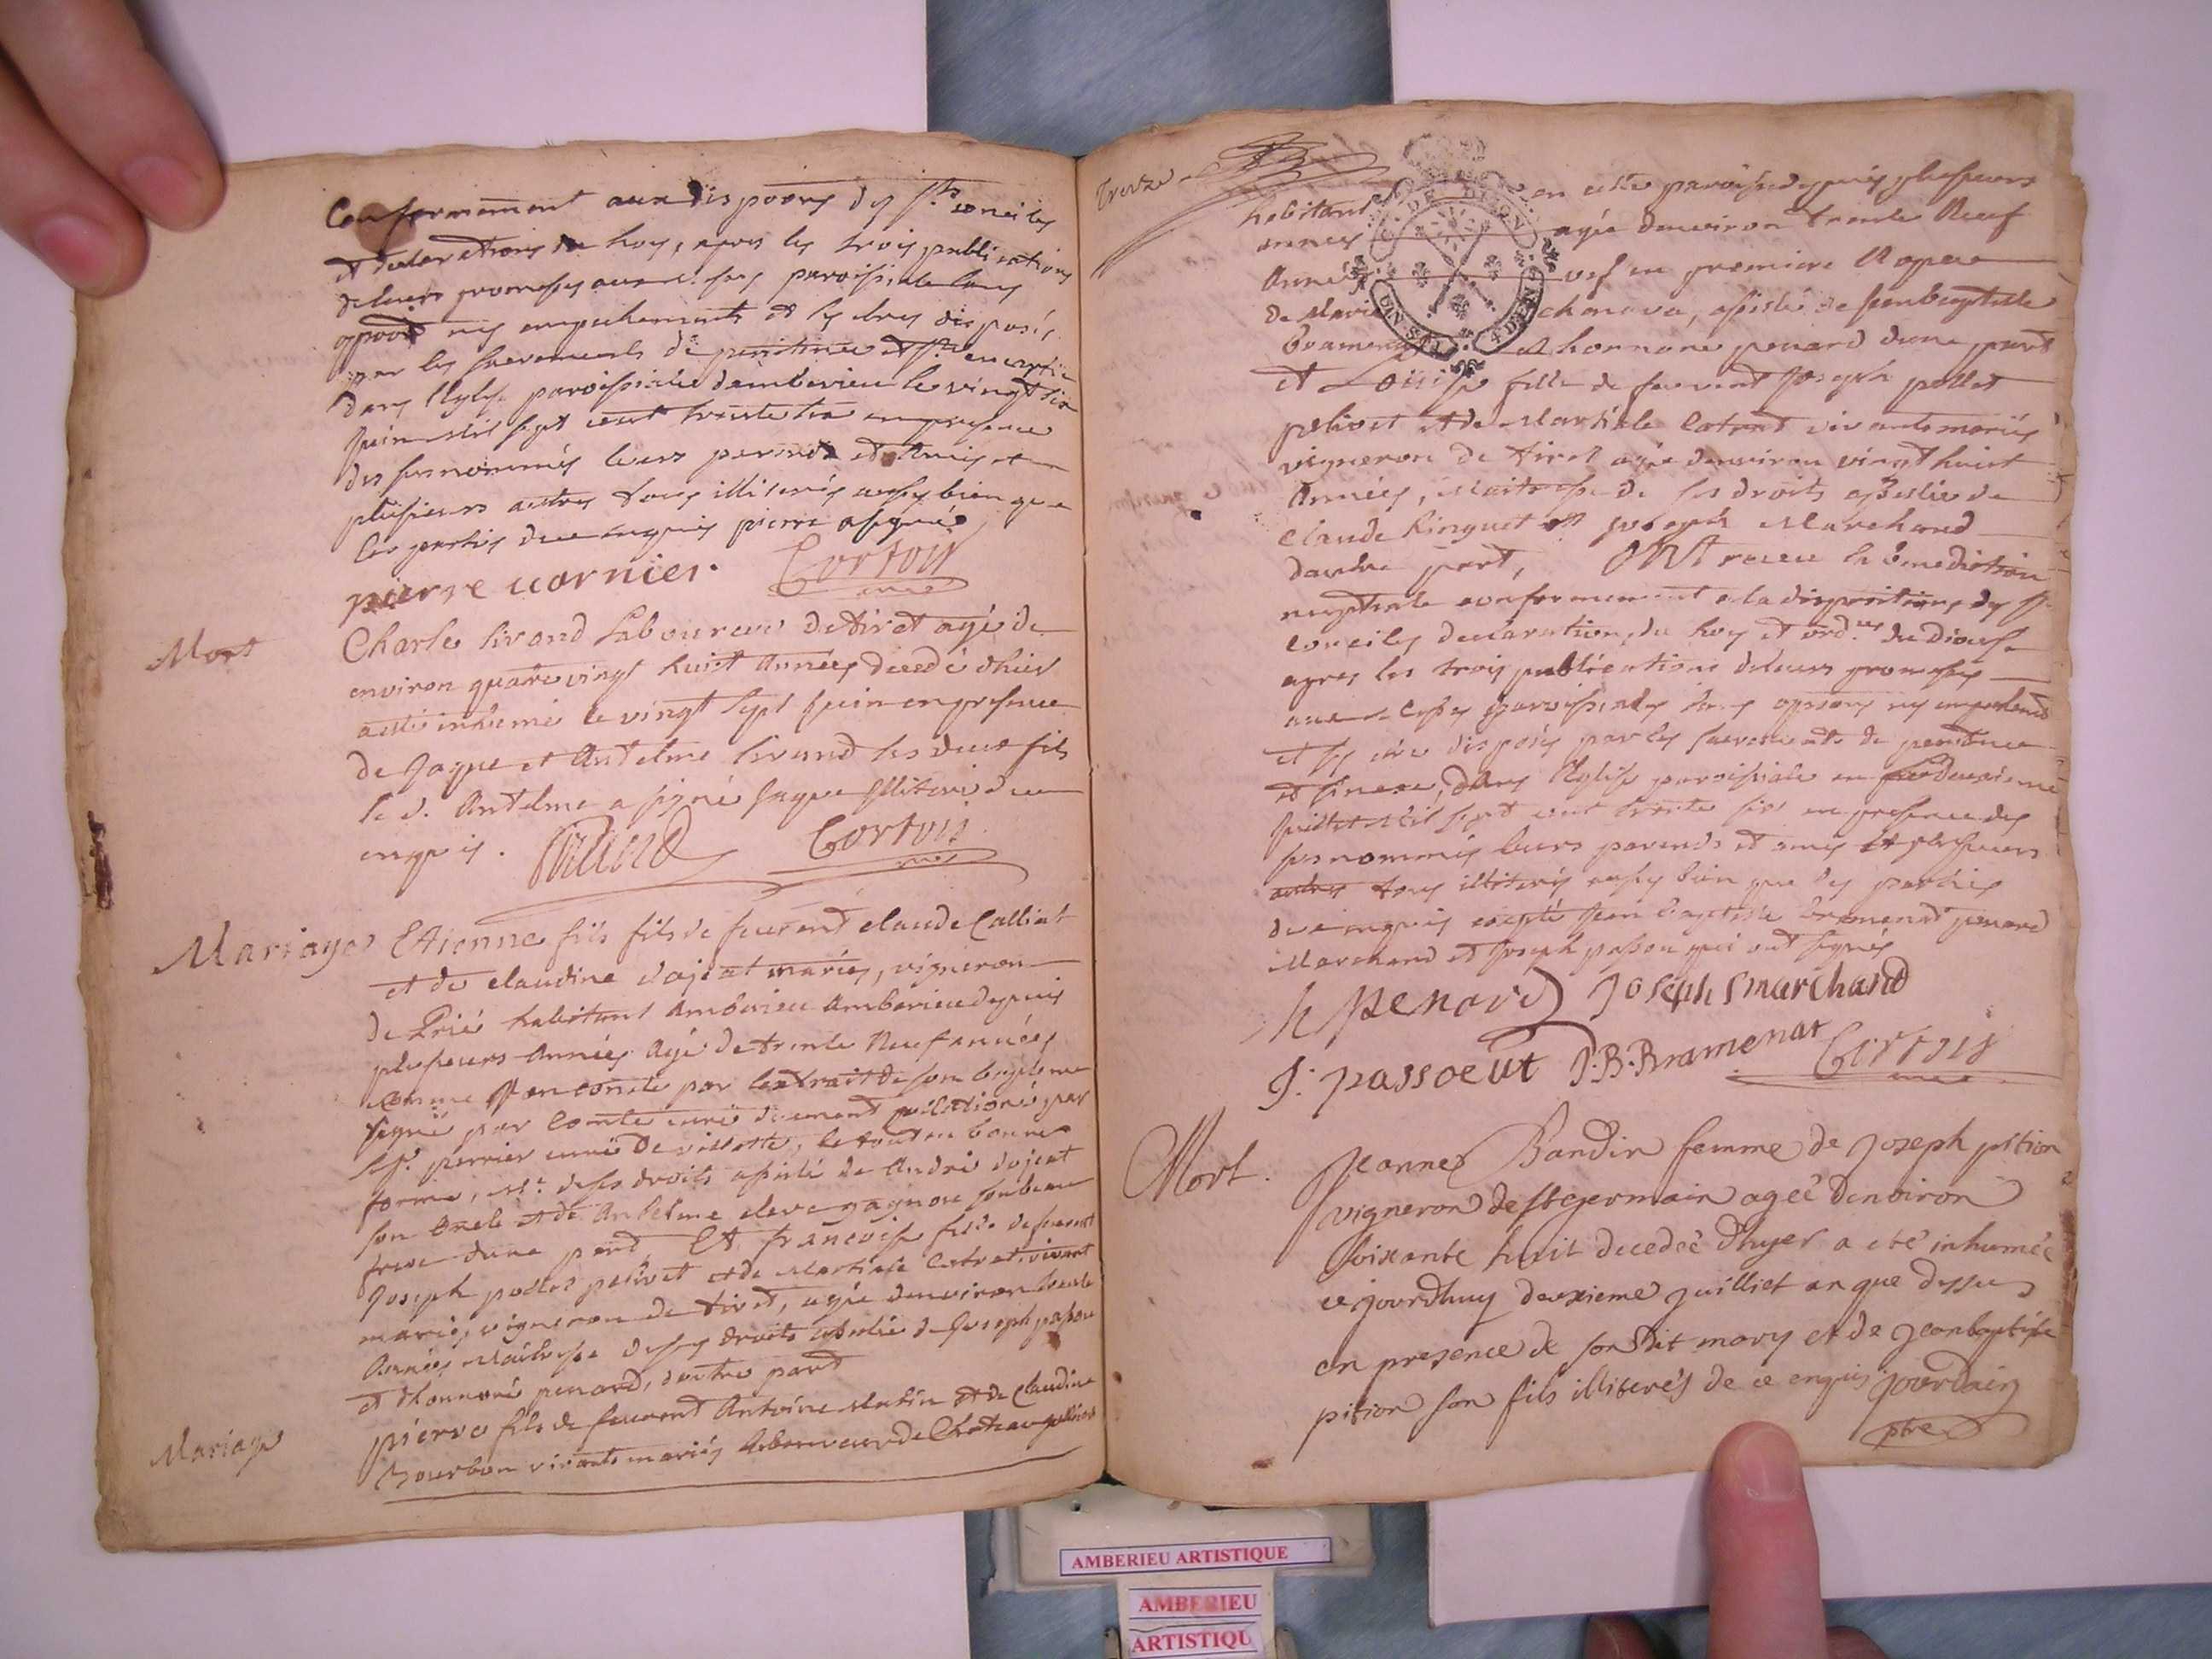 Conformement aux dispoons des Sts conciles
et declarations du Roy, apres les trois publications
de leurs promesses aux messes paroissiale sans
oppoon ny empechements et s'estre disposés
par les sacrements de penitence et St eucarstie
dans l'Eglise paroissialle d'amberieu le vingt six
juin mil sept cent trente six en presence
des susnommés leurs parents et amis et
plusieurs autres tous illiterés aussy bien que
les parties de ce enquis pierre a signé
pierre uornier. Cortois
curé
Mort
Charle sirand Laboureur de tiret agé de
environ quatre vingt huict Années decedé d'hier
a esté inhumé le vingt sept juin en presence
de Jaque et Antelme sirand ses deux fils
le d. Antelme a signé Jaque illiteré de ce
enquis. Sirand Cortois
curé
Mariage
Etienne fils de feurent claude Calliat
et de claudine dajeat mariés, vigneron
de Prié habitant Amberieu depuis
plusieurs Années Agé de trente Neuf années
comme il en conste par l'extrait de son bapteme
signé par Comte curé
perrier curé de villette, le tout en bonne
forme, me de ses droits assisté de André dajeat
son oncle et de Antelme cleve gagnou son beau
frere d'une part, Et francoise fille de feurent
Joseph pollet pelivet et de Martiale Cotrat vivant
mariés vigneron de tiret, agée d'environ trente
Années Maitresse de ses droits assistée de Joseph passou
et d'honnoré penard, d'autre part
Mariage
pierre fils de feurent Antoine Matin et de Claudine
Bourbon vivants mariés Laboureur de Chateau gaillard
Treize
habitant en cette paroisse depuis plusieurs
années agé d'environ trente Neuf
Années vef en premiere Nopce
de Marie chanova, assisté de jeanbaptiste
bramenat et honnoré penard d'une part
et Loüise fille de feurent Joseph pollet
pelivet et de Martiale Cotrat vivants mariés
vigneron de tiret agée d'environ vingt huict
Années, Maitresse de ses droits assistée de
claude Ringuet et Joseph Marchand
d'autre part, ONt receu la benediction
nuptiale conformement a la dispositions des Sts
conciles declaration du Roy et ordces du Diocese
apres les trois publications de leurs promesses
aux messes paroissiales sans oppoons ny empechements
et s'estre disposés par les sacrements de penitence
dans l'Eglise paroissiale ce deuxieme
juillet mil sept cent trente six en presence des
susnommés leurs parents et amis et plusieurs
autres tous illiterés aussy bien que les parties
de ce enquis excepté Jean baptiste bramenat penard
Marchand et Joseph passou qui ont signés
h penard Joseph marchand
J: passoeut J.B. Bramenat Cortois
curé
Mort.
Jeanne Bandin femme de Joseph pition
vigneron de st germain agée d'enviroñ
soixante huit decedeé d'hyer a eté inhumée
ce jourdhuy deuxieme juilliet an que dessu
en presence de son dit mary et de jeanbaptiste
pition son fils illiterés de ce enquis jourdain
ptre
AMBERIEU ARTISTIQUE
AMBERIEU
ARTISTIQU